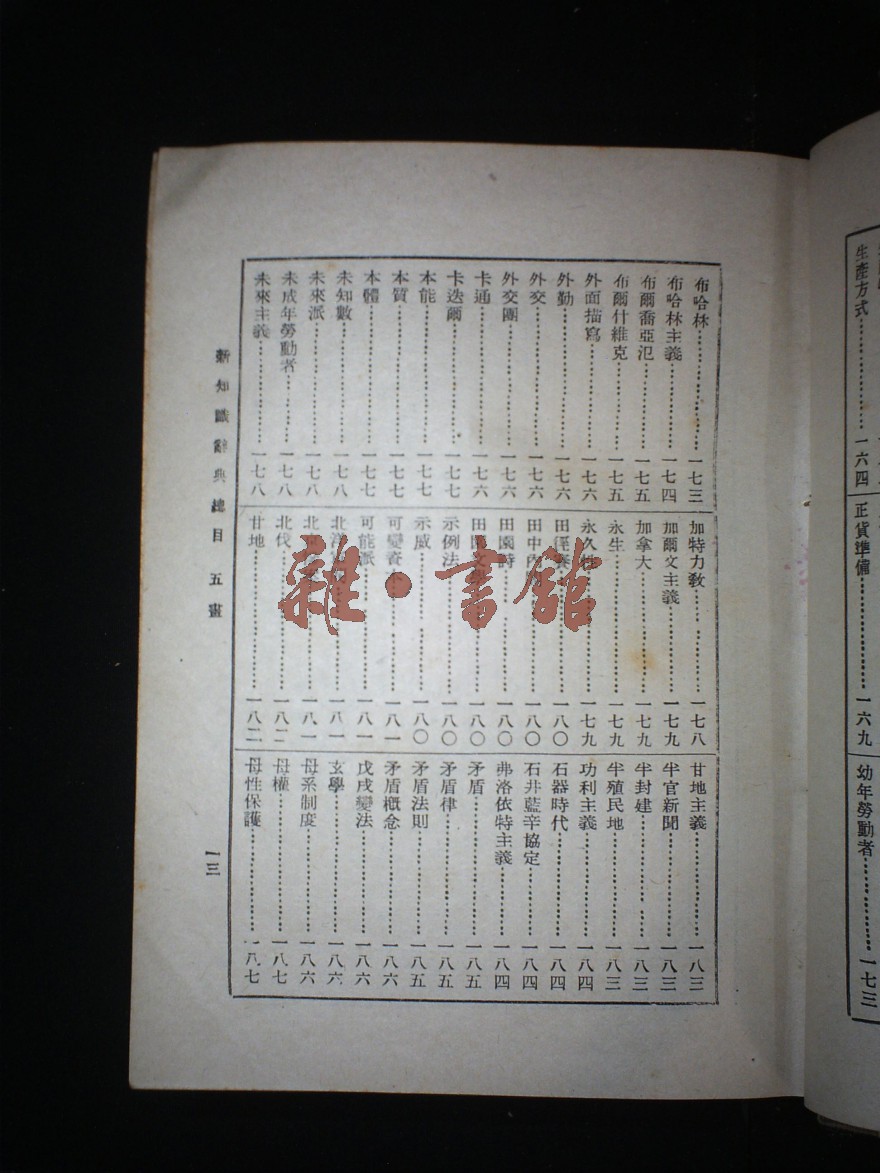 生產方式……一六四
正貨準備……一六九
幼年勞動者……一七三
布哈林……一七三
布哈林主義……一七四
布爾喬亞氾……一七五
布爾什維克……一七五
外面描寫……一七六
外勤……一七六
外交……一七六
外交團……一七六
卡通……一七六
卡迭爾……一七七
本能……一七七
本質……一七七
本體……一七七
未知數……一七八
未來派……一七八
未成年勞動者……一七八
未來主義……一七八
加特力教……一七八
加爾文主義……一七九
加拿大……一七九
永生……一七九
永久……一七九
田徑……一八〇
田中……一八〇
田園詩……一八〇
田園文……一八〇
示例法……一八〇
示威……一八〇
可變資本……一八一
可能派……一八一
北洋……一八一
北……一八一
北伐……一八二
甘地……一八二
甘地主義……一八三
半官新聞……一八三
半封建……一八三
半殖民地……一八三
功利主義……一八四
石器時代……一八四
石井藍辛協定……一八四
弗洛依特主義……一八四
矛盾……一八五
矛盾律……一八五
矛盾法則……一八五
矛盾概念……一八六
戊戌變法……一八六
玄學……一八六
母系制度……一八六
母權……一八七
母性保護……一八七
新知識辭典總目 五畫
一三
雜·書館